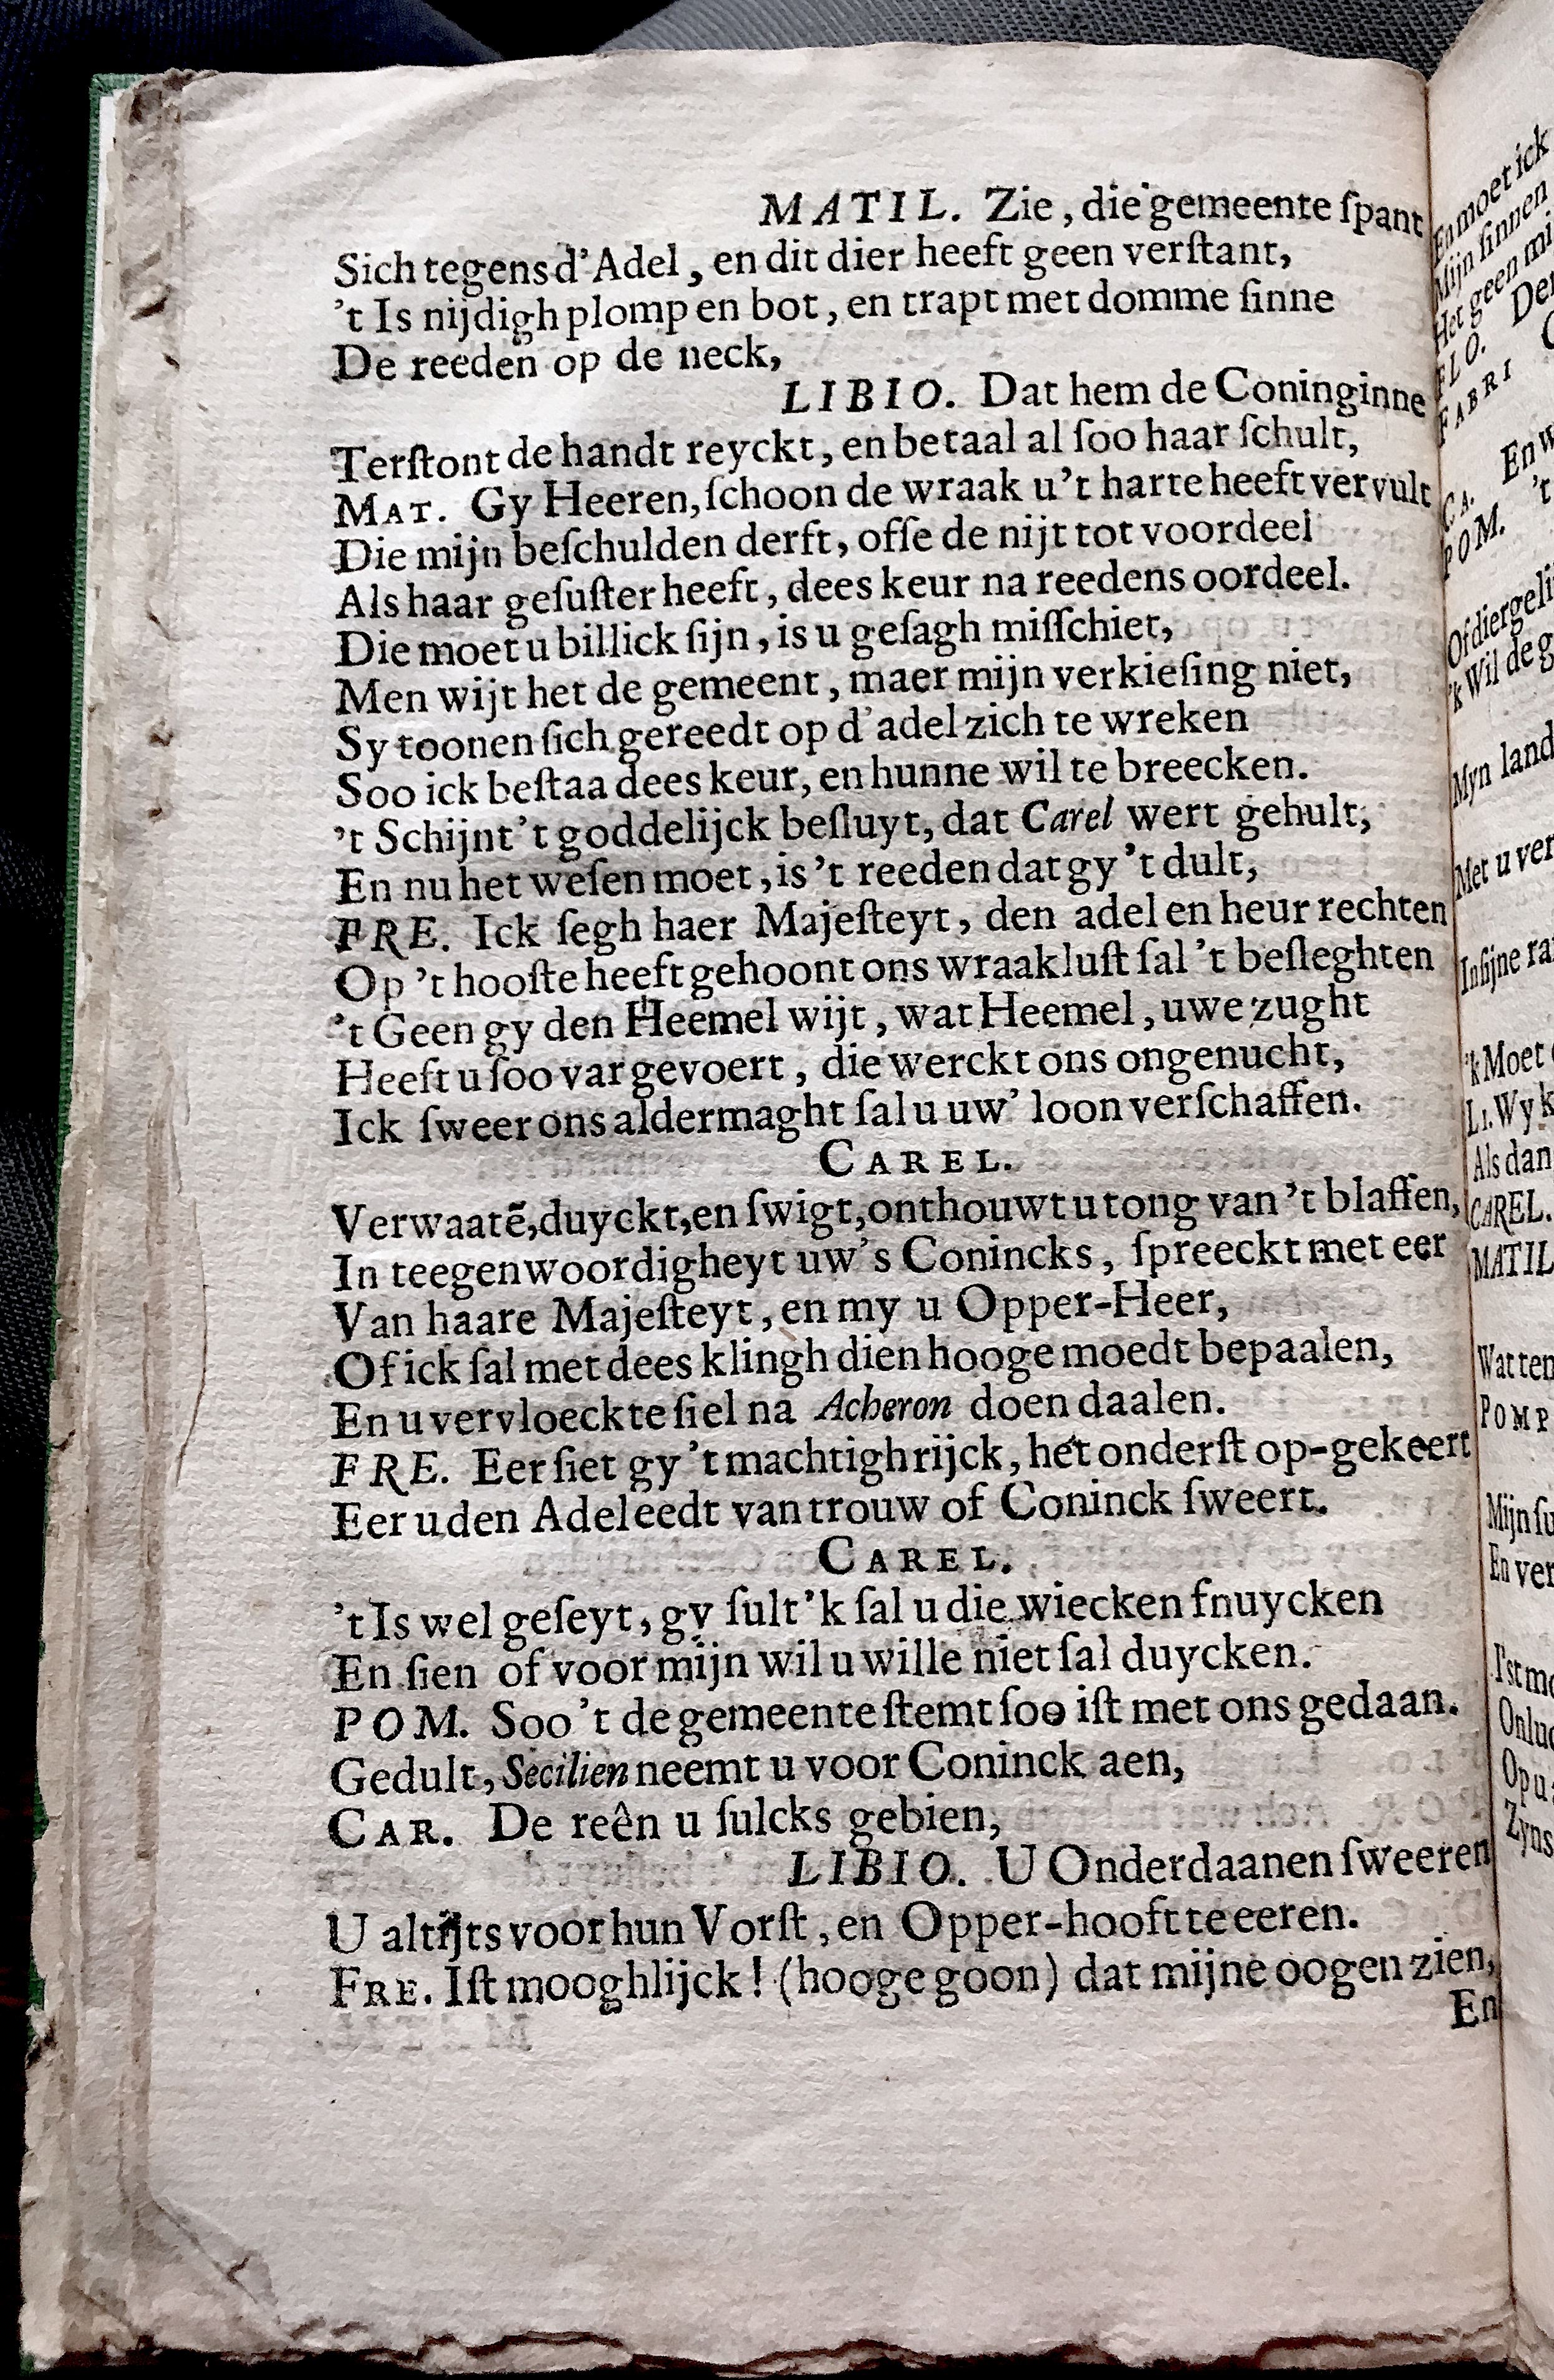 MATIL. Zie, die gemeente ſpant
Sich tegens d'Adel, en dit dier heeft geen verſtant,
't Is nijdigh plomp en bot, en trapt met domme ſinne
De reeden op de neck,
LIBIO. Dat hem de Coninginne
Terſtont de handt reyckt, en betaal al ſoo haar ſchult,
MAT. Gy Heeren, ſchoon de wraak u't harte heeft vervult
Die mijn beſchulden derft, ofſe de nijt tot voordeel
Als haar geſuſter heeft, dees keur na reedens oordeel.
Die moet u billick ſijn, is u geſagh miſſchiet,
Men wijt het de gemeent, maer mijn verkieſing niet,
Sy toonen ſich gereedt op d'adel zich te wreken
Soo ick beſtaa dees keur, en hunne wil te breecken.
't Schijnt 't goddelijck beſluyt, dat Carel wert gehult,
En nu het weſen moet, is 't reeden dat gy 't dult,
FRE. Ick ſegh haer Majeſteyt, den adel en heur rechten
Op 't hooſte heeft gehoont ons wraakluſt ſal 't beſleghten
't Geen gy den Heemel wijt, wat Heemel, uwe zught
Heeft u ſoo var gevoert, die werckt ons ongenucht,
Ick ſweer ons aldermaght ſal u uw' loon verſchaffen.
CAREL.
Verwaatē, duyckt, en ſwigt, onthouwt u tong van 't blaffen,
In teegenwoordigheyt uw's Conincks, ſpreeckt met eer
Van haare Majeſteyt, en my u Opper-Heer,
Of ick ſal met dees klingh dien hooge moedt bepaalen,
En u vervloeckte ſiel na Acheron doen daalen.
FRE. Eer ſiet gy 't machtigh rijck, het onderſt op-gekeert
Eer u den Adel eedt van trouw of Coninck ſweert.
CAREL.
't Is wel geſeyt, gy ſult 'k ſal u die wiecken ſnuycken
En ſien of voor mijn wil u wille niet ſal duycken.
POM. Soo 't de gemeente ſtemt ſoo iſt met ons gedaan.
Gedult, Secilien neemt u voor Coninck aen,
CAR. De reên u ſulcks gebien,
LIBIO. U Onderdaanen ſweeren
U altijts voor hun Vorſt, en Opper-hooft te eeren.
FRE. Iſt mooghlijck! (hooge goon) dat mijne oogen zien,
En
En moet ick
Mijn ſinnen
Het geen mi
FLO. Der
FABRI
En w
CA. 't
POM.
Of diergeli
'k Wil de g
Myn land
Met u ver
In ſijne ra
'k Moet
LI. Wy k
Als dan
CAREL.
MATIL
Wat ten
POMP
Mijn ſu
En ver
I'st mo
Onluc
Op u
Zyns